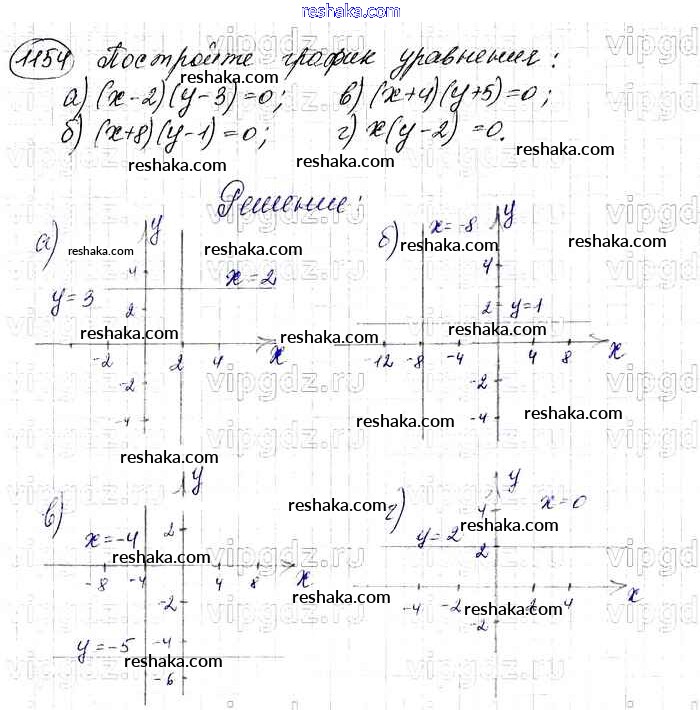 reshaka.com
1154 Постройте график уравнения:
reshaka.com
а) (x-2)(y-3)=0; в) (x+4)(y+5)=0;
reshaka.com
б) (x+8)(y-1)=0; г) x(y-2)=0.
reshaka.com reshaka.com
Решение:
а) y б) x=-8 y
reshaka.com reshaka.com reshaka.com reshaka.com
4 x=2 4
y=3 2 2 y=1
reshaka.com reshaka.com reshaka.com
-2 2 4 x -12 -8 -4 4 8 x
-2 -2
-4 -4
reshaka.com reshaka.com
reshaka.com
в) y г) y
reshaka.com reshaka.com
4 x=0
x=-4 2 y=2 2
reshaka.com reshaka.com
-8 -4 4 8 x -4 -2 2 4 x
reshaka.com
-2 -2
y=-5 -4
reshaka.com reshaka.com
-6
vipgdz.ru